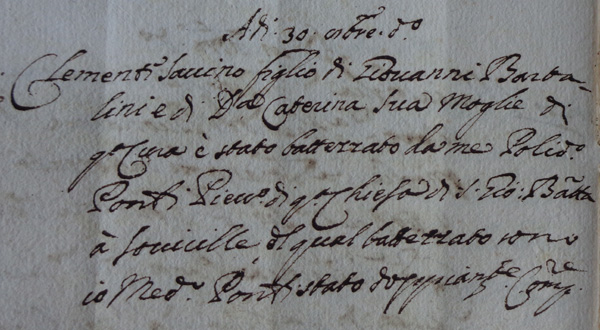 Adi. 30. 9mbre. do
Clementi Savino figlio di Giovanni Barta-
lini e di Da Caterina sua Moglie di
qta Cura è stato batterzato da me Polido.
Ponti Pievo. di qta Chiesa di S. Gio: Batta
à Sovicille, del qual batterzato sono
io Medo. Ponti stato doppiante Comp.re